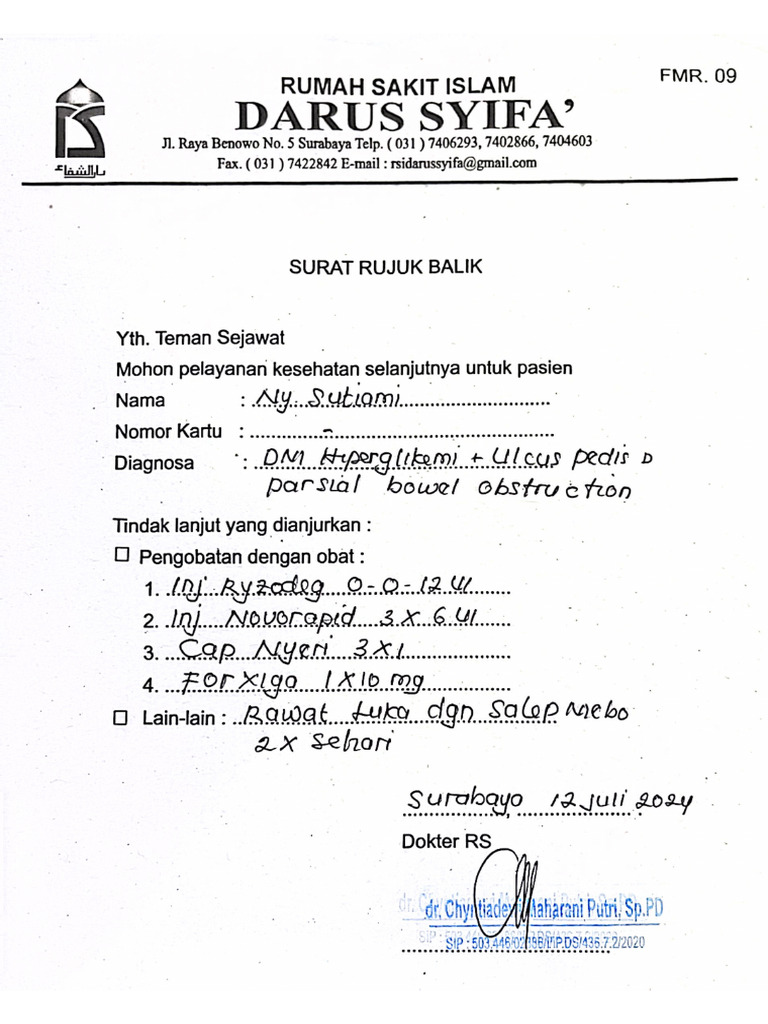 FMR. 09
RUMAH SAKIT ISLAM
DARUS SYIFA'
Jl. Raya Benowo No. 5 Surabaya Telp. ( 031 ) 7406293, 7402866, 7404603
Fax. ( 031 ) 7422842 E-mail : rsidarussyifa@gmail.com
دار الشفاء
SURAT RUJUK BALIK
Yth. Teman Sejawat
Mohon pelayanan kesehatan selanjutnya untuk pasien
Nama : Ny. Sutiami
Nomor Kartu : -
Diagnosa : DM Hiperglikemi + Ulcus pedis D
parsial bowel obstruction
Tindak lanjut yang dianjurkan :
☐ Pengobatan dengan obat :
1. Inj Ryzodeg 0-0-12 UI
2. Inj Novorapid 3 x 6 UI
3. Cap Nyeri 3x1
4. Forxiga 1x10 mg
☐ Lain-lain : Rawat luka dgn salep Mebo
2x sehari
Surabaya, 12 Juli 2024
Dokter RS
dr. Chyntiadewi Maharani Putri, Sp.PD
SIP : 503.446/ /IP.DS/436.7.2/2020